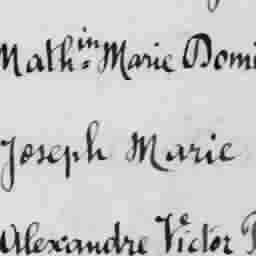 Math.in Marie Domi
Joseph Marie
Alexandre Victor